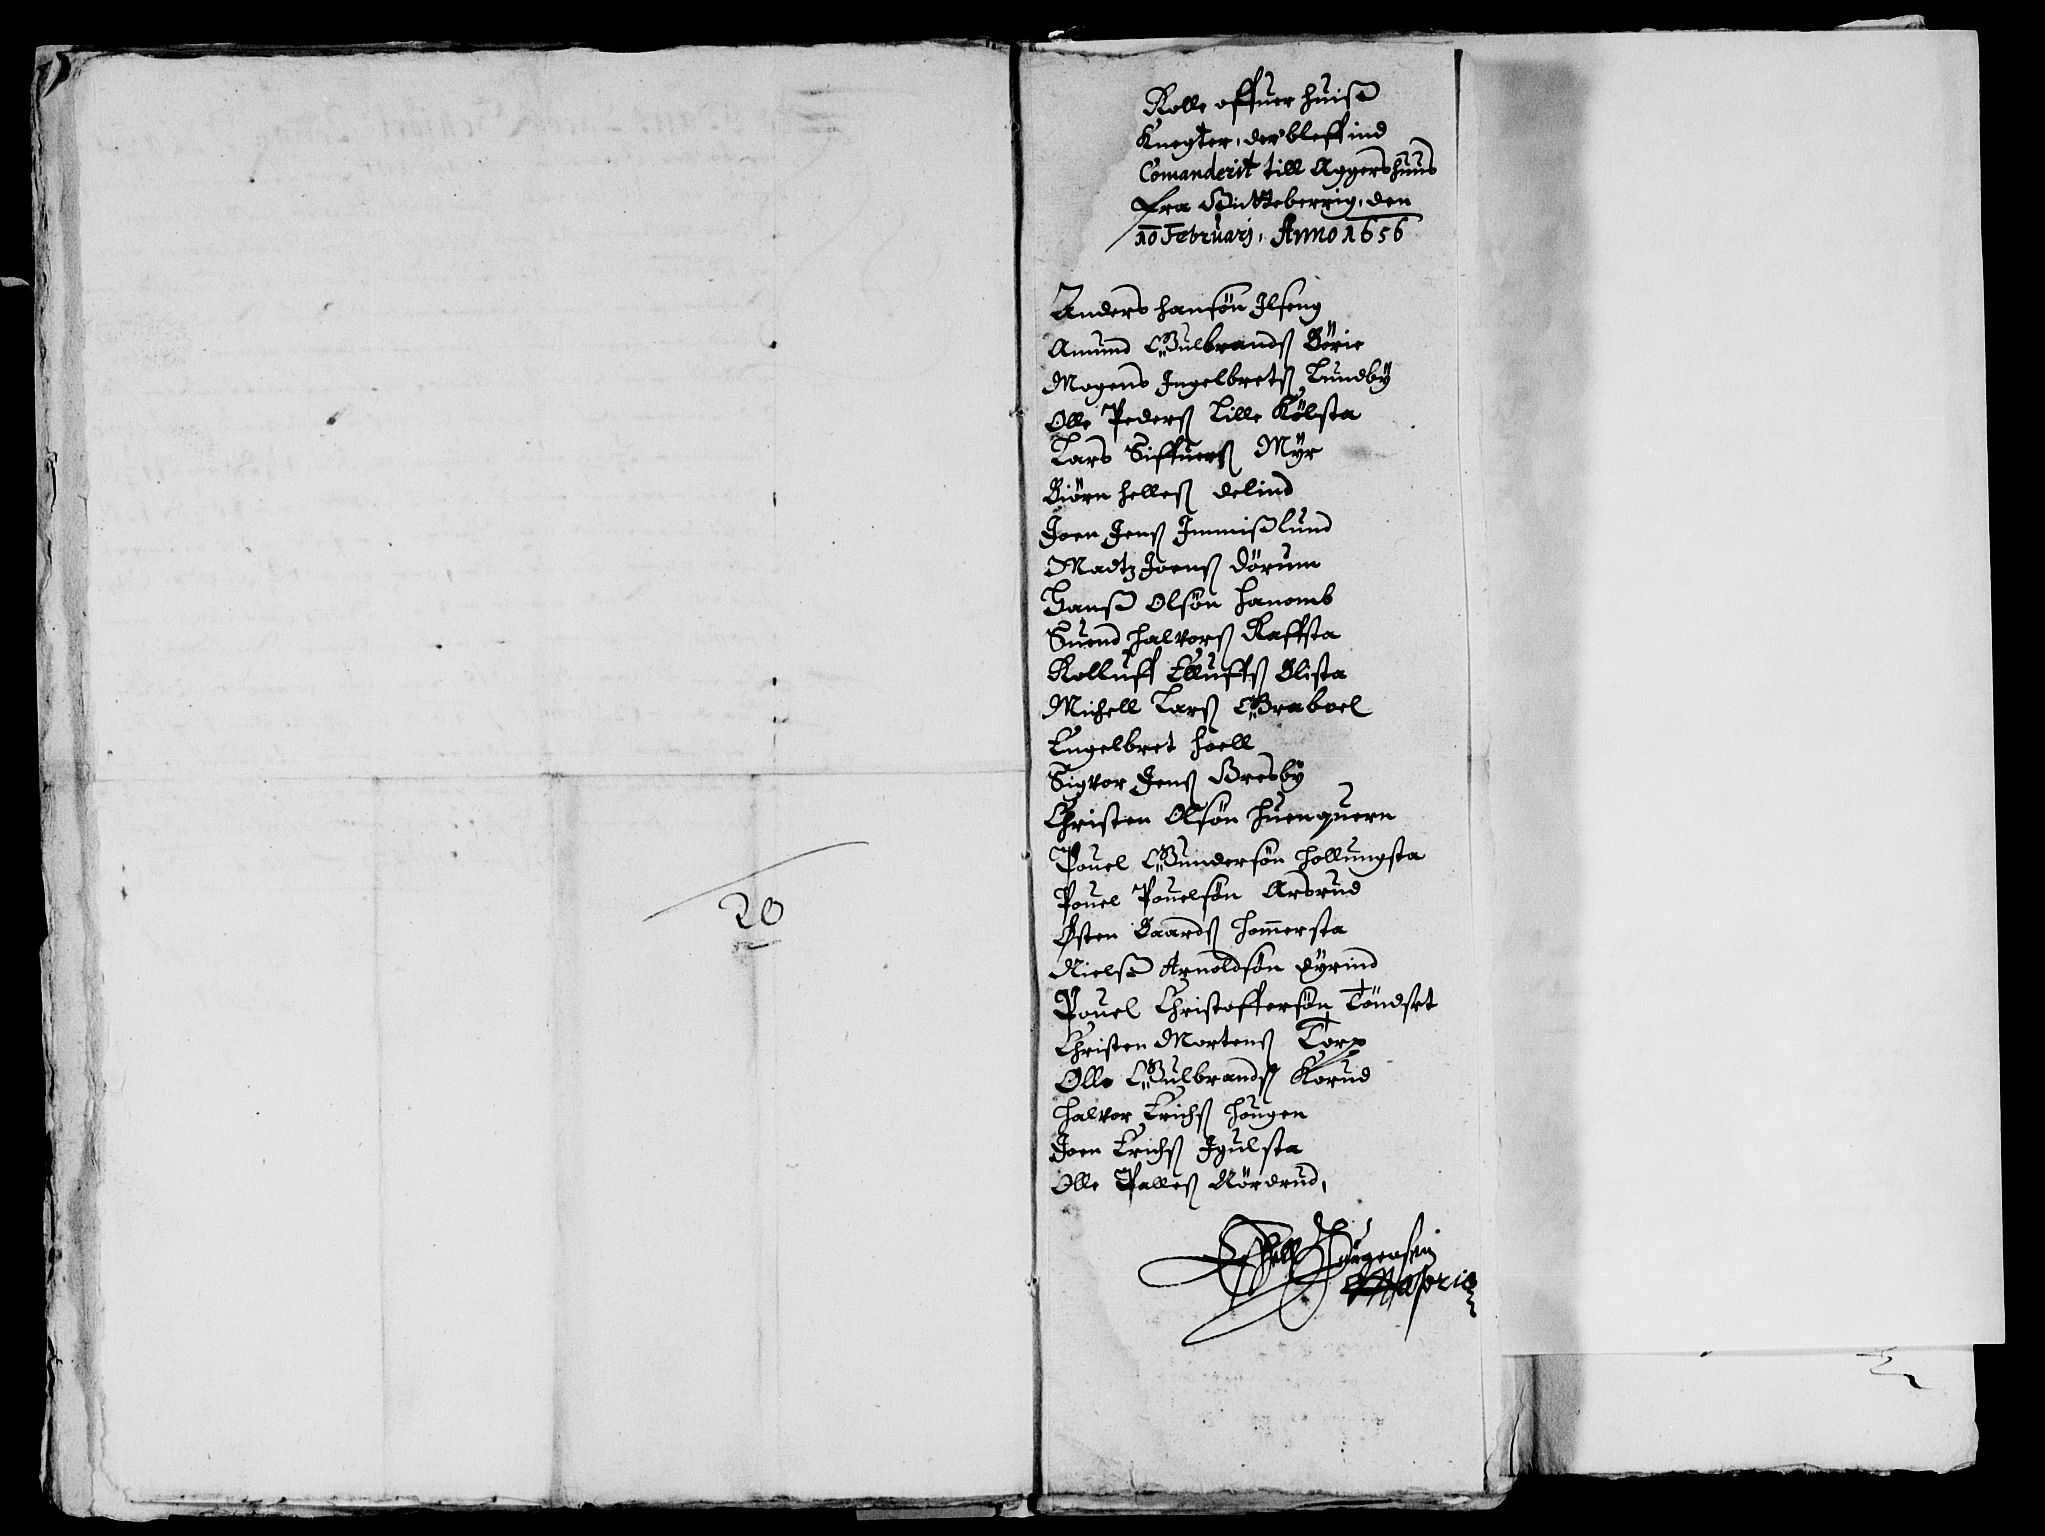 20
Rolle offuer huisß
Knegter, der bleff ind
Comanderit till Aggershuus
fra Gutteberrig, den
10 Februarj, Anno 1656
Anders hansön Ilseng
Amund Gulbrandß Börie
Mogens Ingelbretß Lundbÿ
Olle Pederß Lille Kölsta
Lars Siffuerß Mÿr
Biörn helleß delind
Joen Jenß Immißlund
Madtz Joenß dörum
Hanß Olsön hanomb
Suend halvorß Raffsta
Rolluff Elluffß Glista
Michell Larß Graboel
Engelbret hoell
Sigvor Jenß Gresbÿ
Christen Olsön huenquern
Pouel Gundersön hollungsta
Pouel Pouelsön Arsrud
Østen Baardß hom̄ersta
Nielß Arnoldsön dÿrind
Pouel Christoffersön Töndset
Christen Mortenß Torp
Olle Gulbrandß Korud
halvor Erichß hougen
Joen Erichß Igulsta
Olle Palleß Nördrud,
Jürgensen
Mapria